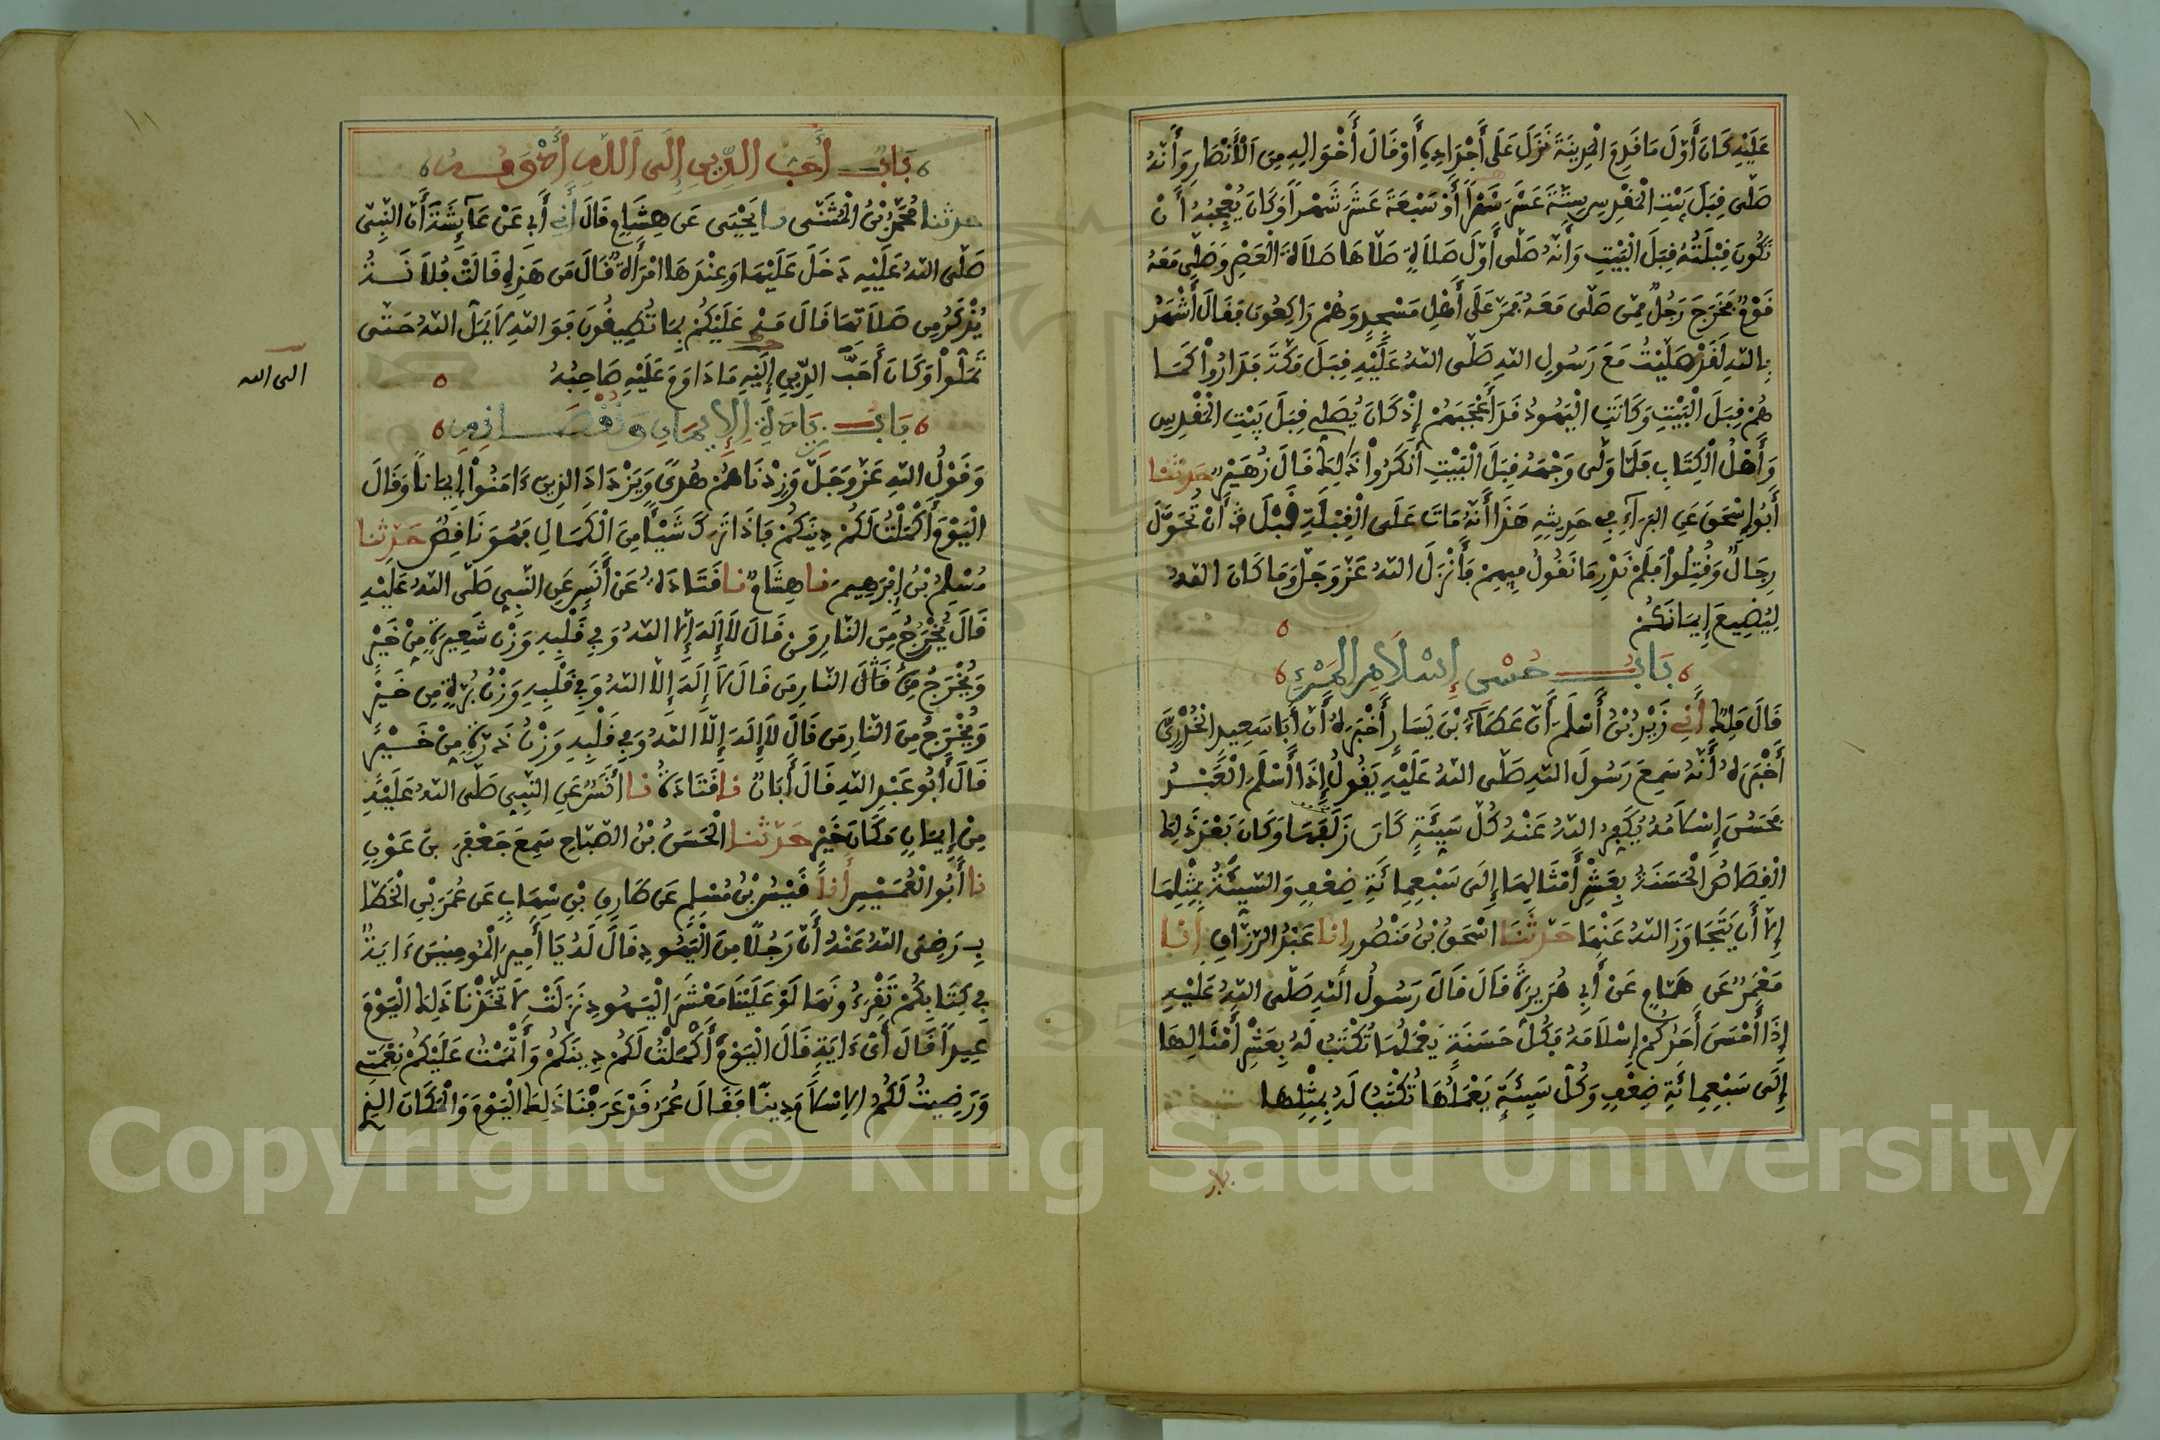 عَلَيْهِ كَانَ أَوَّلَ مَا قَدِمَ الْمَدِينَةَ نَزَلَ عَلَى أَجْدَادِهِ أَوْ قَالَ أَخْوَالِهِ مِنَ الْأَنْصَارِ وَأَنَّهُ
صَلَّى قِبَلَ بَيْتِ الْمَقْدِسِ سِتَّةَ عَشَرَ شَهْراً أَوْ سَبْعَةَ عَشَرَ شَهْراً وَكَانَ يُعْجِبُهُ أَنْ
تَكُونَ قِبْلَتُهُ قِبَلَ الْبَيْتِ وَأَنَّهُ صَلَّى أَوَّلَ صَلَاةٍ صَلَّاهَا صَلَاةَ الْعَصْرِ وَصَلَّى مَعَهُ
قَوْمٌ فَخَرَجَ رَجُلٌ مِمَّن صَلَّى مَعَهُ فَمَرَّ عَلَى أَهْلِ مَسْجِدٍ وَهُمْ رَاكِعُونَ فَقَالَ أَشْهَدُ
بِاللهِ لَقَدْ صَلَّيْتُ مَعَ رَسُولِ اللهِ صَلَّى اللهُ عَلَيْهِ قِبَلَ مَكَّةَ فَدَارُوا كَمَا
هُمْ قِبَلَ الْبَيْتِ وَكَانَتِ الْيَهُودُ قَدْ أَعْجَبَهُمْ إِذْ كَانَ يُصَلِّي قِبَلَ بَيْتِ الْمَقْدِسِ
وَأَهْلُ الْكِتَابِ فَلَمَّا وَلَّى وَجْهَهُ قِبَلَ الْبَيْتِ أَنْكَرُوا ذَلِكَ قَالَ زُهَيْرٌ حَدَّثَنَا
أَبُو إِسْحَقَ عَنِ الْبَرَاءِ فِي حَدِيثِهِ هَذَا أَنَّهُ مَاتَ عَلَى الْقِبْلَةِ قَبْلَ أَنْ تُحَوَّلَ
رِجَالٌ وَقُتِلُوا فَلَمْ نَدْرِ مَا نَقُولُ فِيهِمْ فَأَنْزَلَ اللهُ عَزَّ وَجَلَّ وَمَا كَانَ اللهُ
لِيُضِيعَ إِيمَانَكُمْ
بَابُ حُسْنِ إِسْلَامِ الْمَرْءِ
قَالَ مَلِكٌ أَنِي زَيْدُ بْنُ أَسْلَمَ أَنَّ عَطَاءَ بْنَ يَسَارٍ أَخْبَرَهُ أَنَّ أَبَا سَعِيدٍ الْخُدْرِيَّ
أَخْبَرَهُ أَنَّهُ سَمِعَ رَسُولَ اللهِ صَلَّى اللهُ عَلَيْهِ يَقُولُ إِذَا أَسْلَمَ الْعَبْدُ
فَحَسُنَ إِسْلَامُهُ يُكَفِّرُ اللهُ عَنْهُ كُلَّ سَيِّئَةٍ كَانَ زَلَفَهَا وَكَانَ بَعْدَ ذَلِكَ
الْقِصَاصُ الْحَسَنَةُ بِعَشْرِ أَمْثَالِهَا إِلَى سَبْعِمِائَةِ ضِعْفٍ وَالسَّيِّئَةُ بِمِثْلِهَا
إِلَّا أَنْ يَتَجَاوَزَ اللهُ عَنْهَا حَدَّثَنَا إِسْحَقُ بْنُ مَنْصُورٍ انا عَبْدُ الرَّزَّاقِ انا
مَعْمَرٌ عَنْ هَمَّامٍ عَنْ أَبِي هُرَيْرَةَ قَالَ قَالَ رَسُولُ اللهِ صَلَّى اللهُ عَلَيْهِ
إِذَا أَحْسَنَ أَحَدُكُمْ إِسْلَامَهُ فَكُلُّ حَسَنَةٍ يَعْمَلُهَا تُكْتَبُ لَهُ بِعَشْرِ أَمْثَالِهَا
إِلَى سَبْعِمِائَةِ ضِعْفٍ وَكُلُّ سَيِّئَةٍ يَعْمَلُهَا تُكْتَبُ لَهُ بِمِثْلِهَا
بَابُ أَحَبُّ الدِّينِ إِلَى اللهِ أَدْوَمُهُ
حدثنا مُحَمَّدُ بْنُ الْمُثَنَّى نا يَحْيَى عَنْ هِشَامٍ قَالَ أَنِي أَبِي عَنْ عَائِشَةَ أَنَّ النَّبِيَّ
صَلَّى اللهُ عَلَيْهِ دَخَلَ عَلَيْهَا وَعِنْدَهَا امْرَأَةٌ قَالَ مَنْ هَذِهِ قَالَتْ فُلَانَةُ
يُذْكَرُ مِن صَلَاتِهَا قَالَ مَهْ عَلَيْكُمْ بِمَا تُطِيقُونَ فَوَاللهِ لَا يَمَلُّ اللهُ حَتَّى
تَمَلُّوا وَكَانَ أَحَبَّ الدِّينِ إِلَيْهِ مَا دَاوَمَ عَلَيْهِ صَاحِبُهُ
الى الله
بَابُ زِيَادَةِ الْإِيمَانِ وَنُقْصَانِهِ
وَقَوْلُ اللهِ عَزَّ وَجَلَّ وَزِدْنَاهُمْ هُدًى وَيَزْدَادَ الذِينَ ءَامَنُوا إِيمَاناً وَقَالَ
الْيَوْمَ أَكْمَلْتُ لَكُمْ دِينَكُمْ فَإِذَا تَرَكَ شَيْئاً مِنَ الْكَمَالِ فَهُوَ نَاقِصٌ حَدَّثَنَا
مُسْلِمُ بْنُ إِبْرَهِيمَ نا هِشَامٌ نا قَتَادَةُ عَنْ أَنَسٍ عَنِ النَّبِيِّ صَلَّى اللهُ عَلَيْهِ
قَالَ يُخْرَجُ مِنَ النَّارِ مَنْ قَالَ لَا إِلَهَ إِلَّا اللهُ وَفِي قَلْبِهِ وَزْنُ شَعِيرَةٍ مِنْ خَيْرٍ
وَيُخْرَجُ مِنَ النَّارِ مَنْ قَالَ لَا إِلَهَ إِلَّا اللهُ وَفِي قَلْبِهِ وَزْنُ بُرَّةٍ مِنْ خَيْرٍ
وَيُخْرَجُ مِنَ النَّارِ مَنْ قَالَ لَا إِلَهَ إِلَّا اللهُ وَفِي قَلْبِهِ وَزْنُ ذَرَّةٍ مِنْ خَيْرٍ
قَالَ أَبُو عَبْدِ اللهِ قَالَ أَبَانُ نا قَتَادَةُ نا أَنَسٌ عَنِ النَّبِيِّ صَلَّى اللهُ عَلَيْهِ
مِنْ إِيمَانٍ مَكَانَ خَيْرٍ حَدَّثَنَا الْحَسَنُ بْنُ الصَّبَّاحِ سَمِعَ جَعْفَرَ بْنَ عَوْنٍ
نا أَبُو الْعُمَيْسِ أَنَا قَيْسُ بْنُ مُسْلِمٍ عَنْ طَارِقِ بْنِ شِهَابٍ عَنْ عُمَرَ بْنِ الْخَطَّا
بِ رَضِيَ اللهُ عَنْهُ أَنَّ رَجُلًا مِنَ الْيَهُودِ قَالَ لَهُ يَا أَمِيرَ الْمُومِنِينَ ءَايَةٌ
فِي كِتَابِكُمْ تَقْرَءُونَهَا لَوْ عَلَيْنَا مَعْشَرَ الْيَهُودِ نَزَلَتْ لَاتَّخَذْنَا ذَلِكَ الْيَوْمَ
عِيداً قَالَ أَيُّ ءَايَةٍ قَالَ الْيَوْمَ أَكْمَلْتُ لَكُمْ دِينَكُمْ وَأَتْمَمْتُ عَلَيْكُمْ نِعْمَتِي
وَرَضِيتُ لَكُمُ الْإِسْلَامَ دِيناً فَقَالَ عُمَرُ قَدْ عَرَفْنَا ذَلِكَ الْيَوْمَ وَالْمَكَانَ الذِي
Copyright © King Saud University